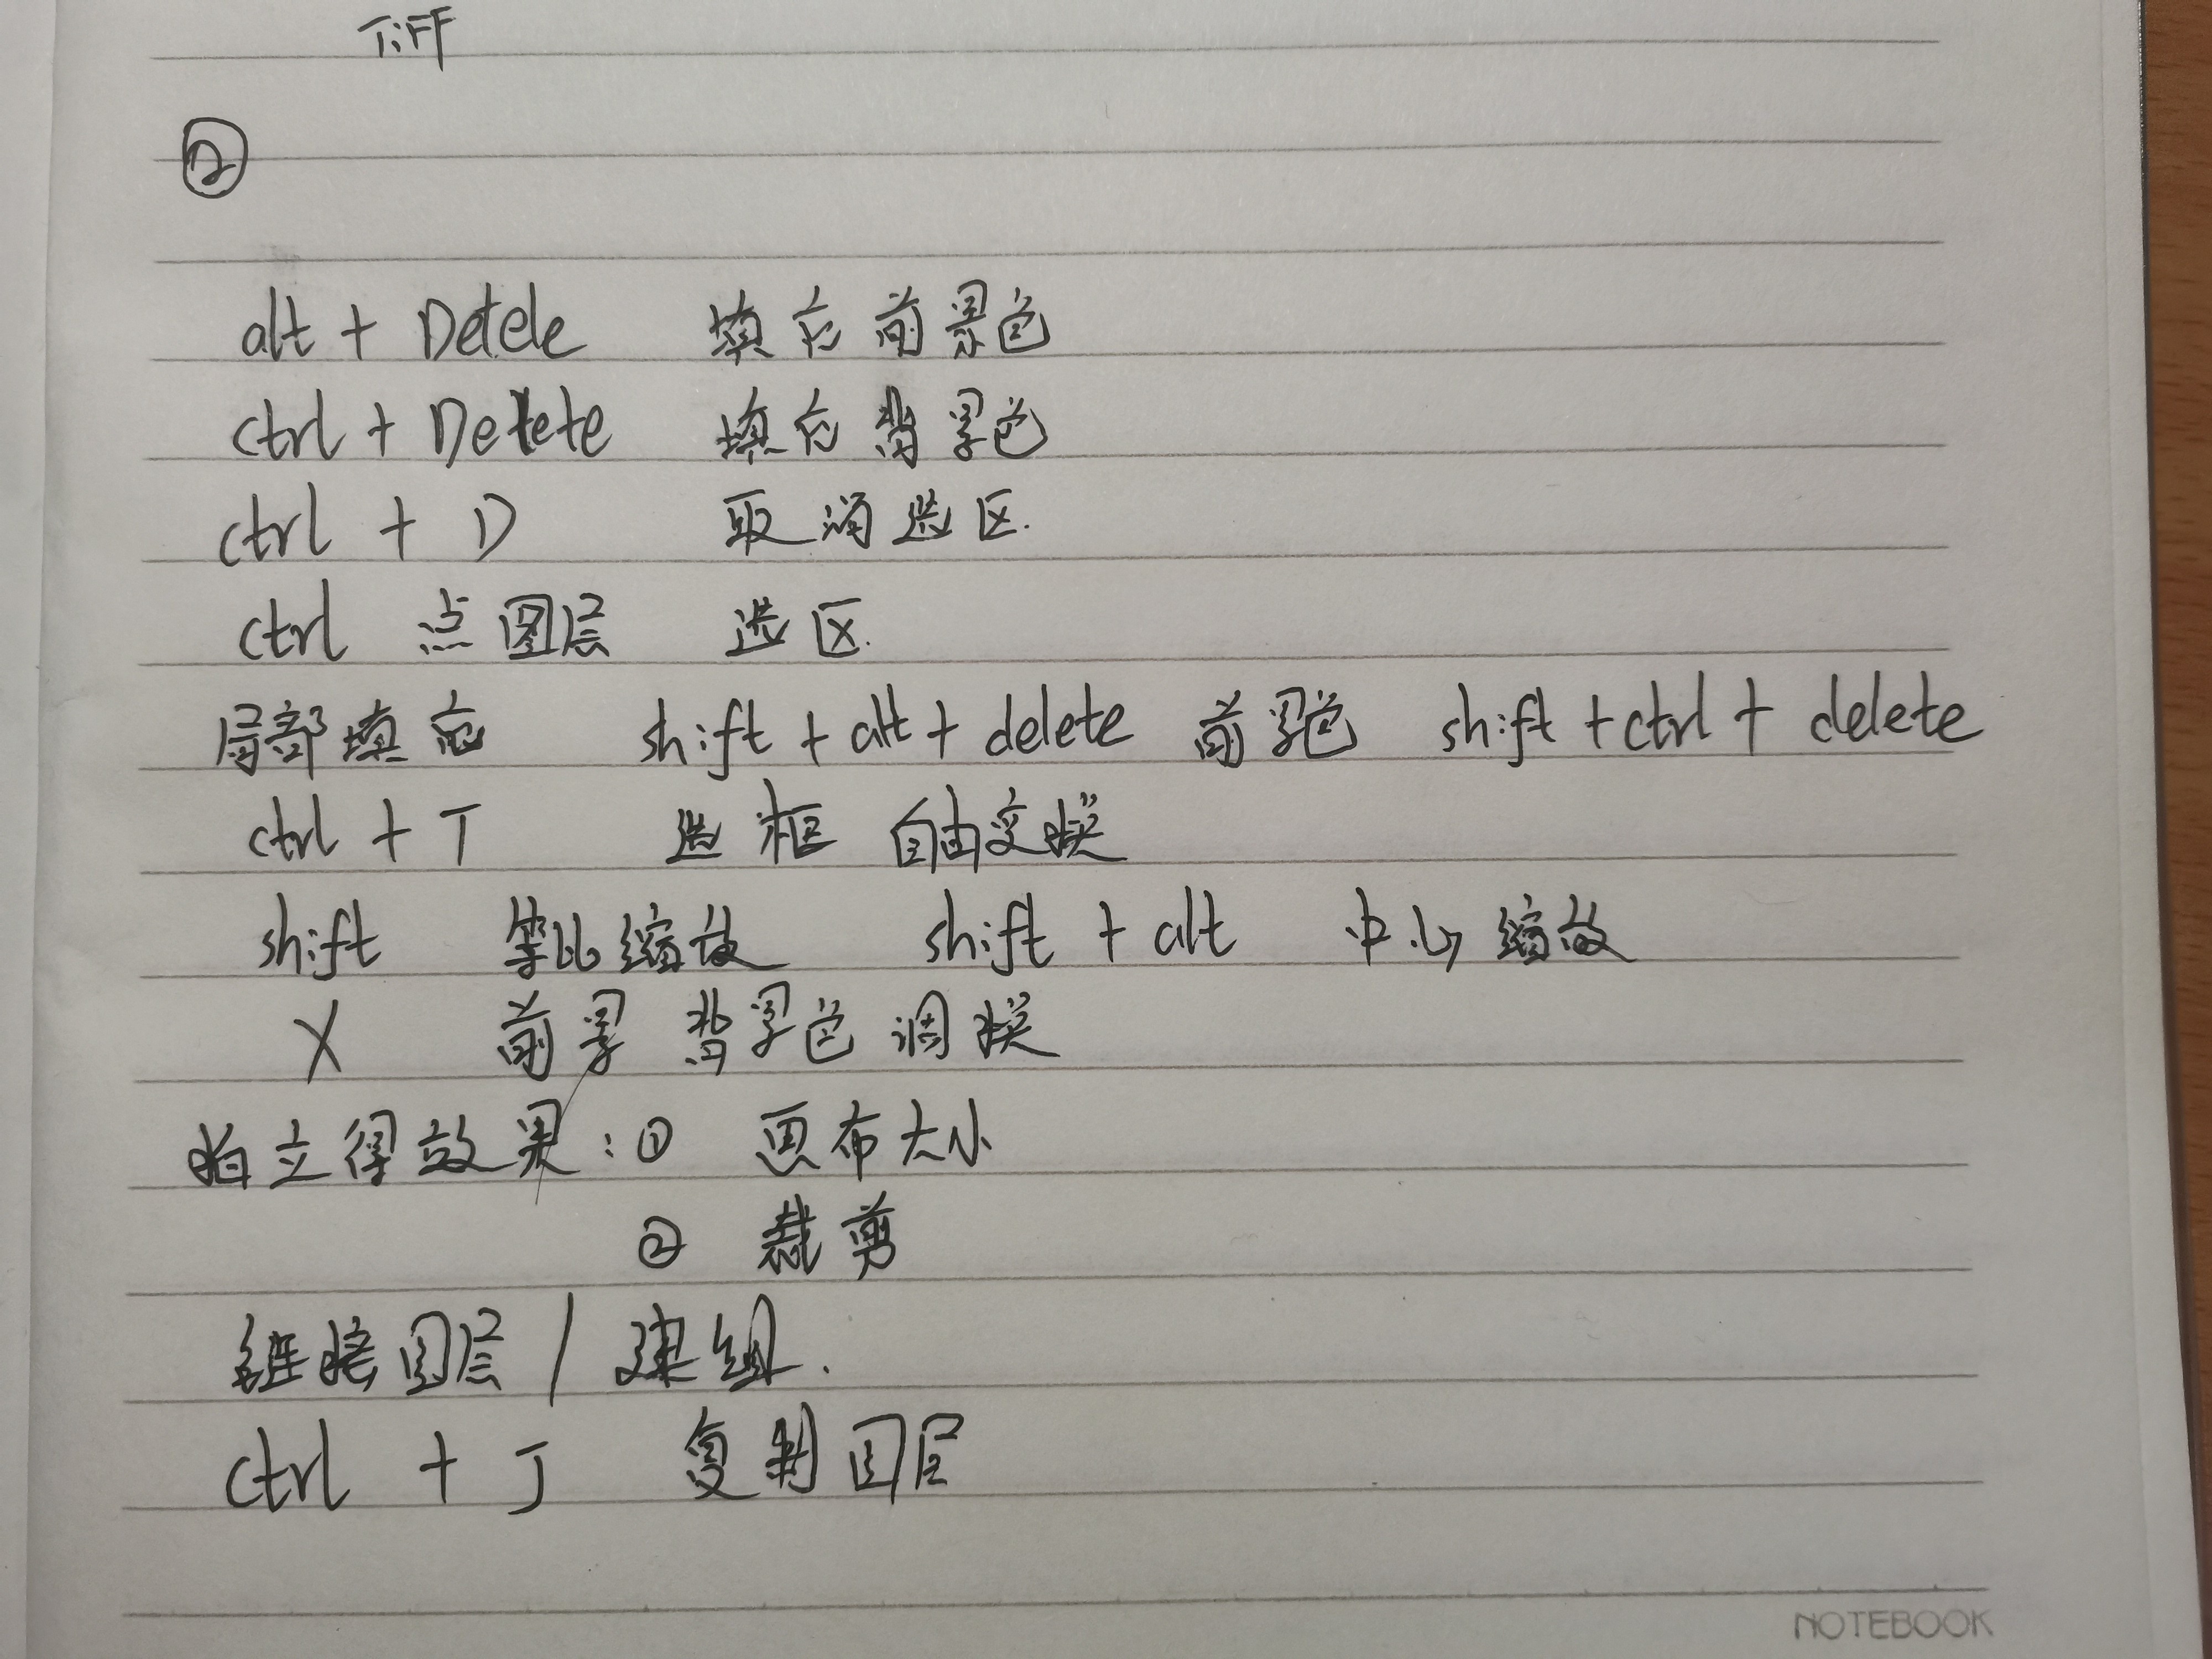 TiFF
②
alt + Detele 填充前景色
ctrl + Delete 填充背景色
ctrl + D 取消选区.
ctrl 点图层 选区.
局部填充 shift + alt + delete 前景色 shift + ctrl + delete
ctrl + T 选框 自由变换
shift 等比缩放 shift + alt 中心缩放
X 前景 背景色 调换
拍立得效果:① 画布大小
② 裁剪
链接图层 / 建组.
ctrl + J 复制图层
NOTEBOOK